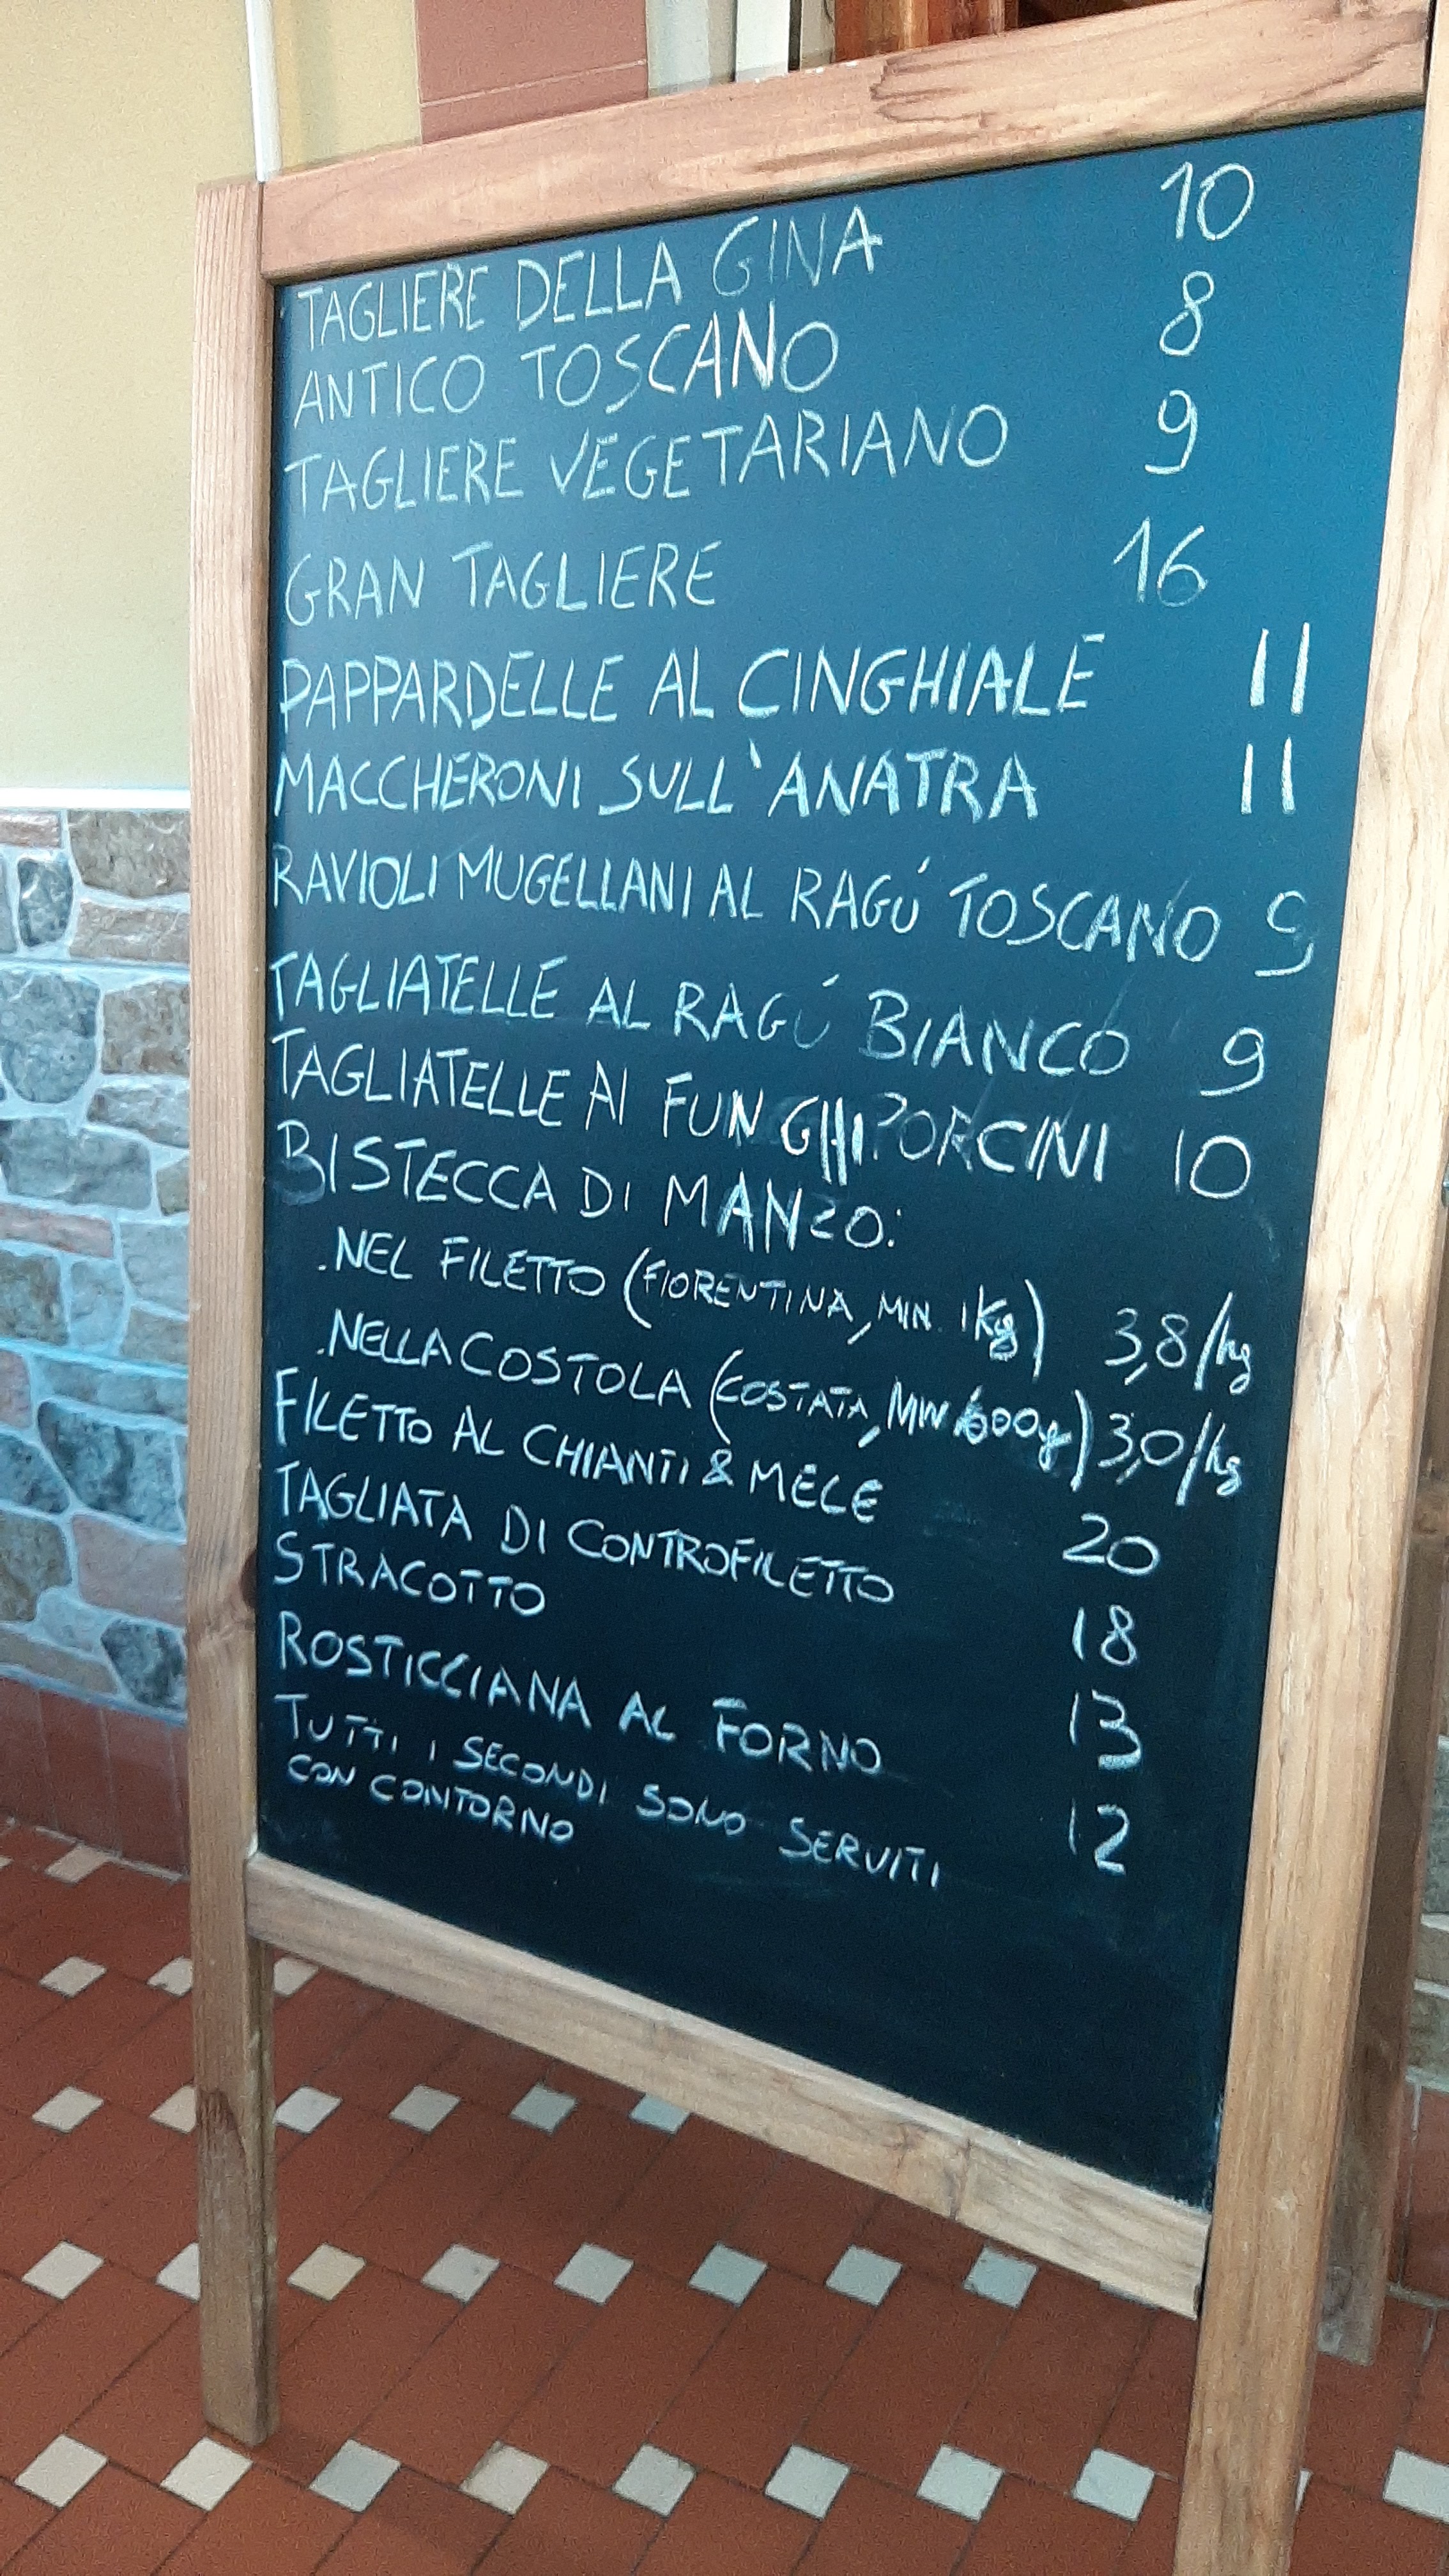 TAGLIERE DELLA GINA 10
ANTICO TOSCANO 8
TAGLIERE VEGETARIANO 9
GRAN TAGLIERE 16
PAPPARDELLE AL CINGHIALE 11
MACCHERONI SULL'ANATRA 11
RAVIOLI MUGELLANI AL RAGÚ TOSCANO 9
TAGLIATELLE AL RAGÚ BIANCO 9
TAGLIATELLE AI FUNGHI PORCINI 10
BISTECCA DI MANZO:
.NEL FILETTO (FIORENTINA, MIN. 1Kg) 3,8/kg
.NELLA COSTOLA (COSTATA, MIN 600g) 3,0/kg
FILETTO AL CHIANTI & MELE 20
TAGLIATA DI CONTROFILETTO 18
STRACOTTO 13
ROSTICCIANA AL FORNO 12
TUTTI I SECONDI SONO SERVITI
CON CONTORNO